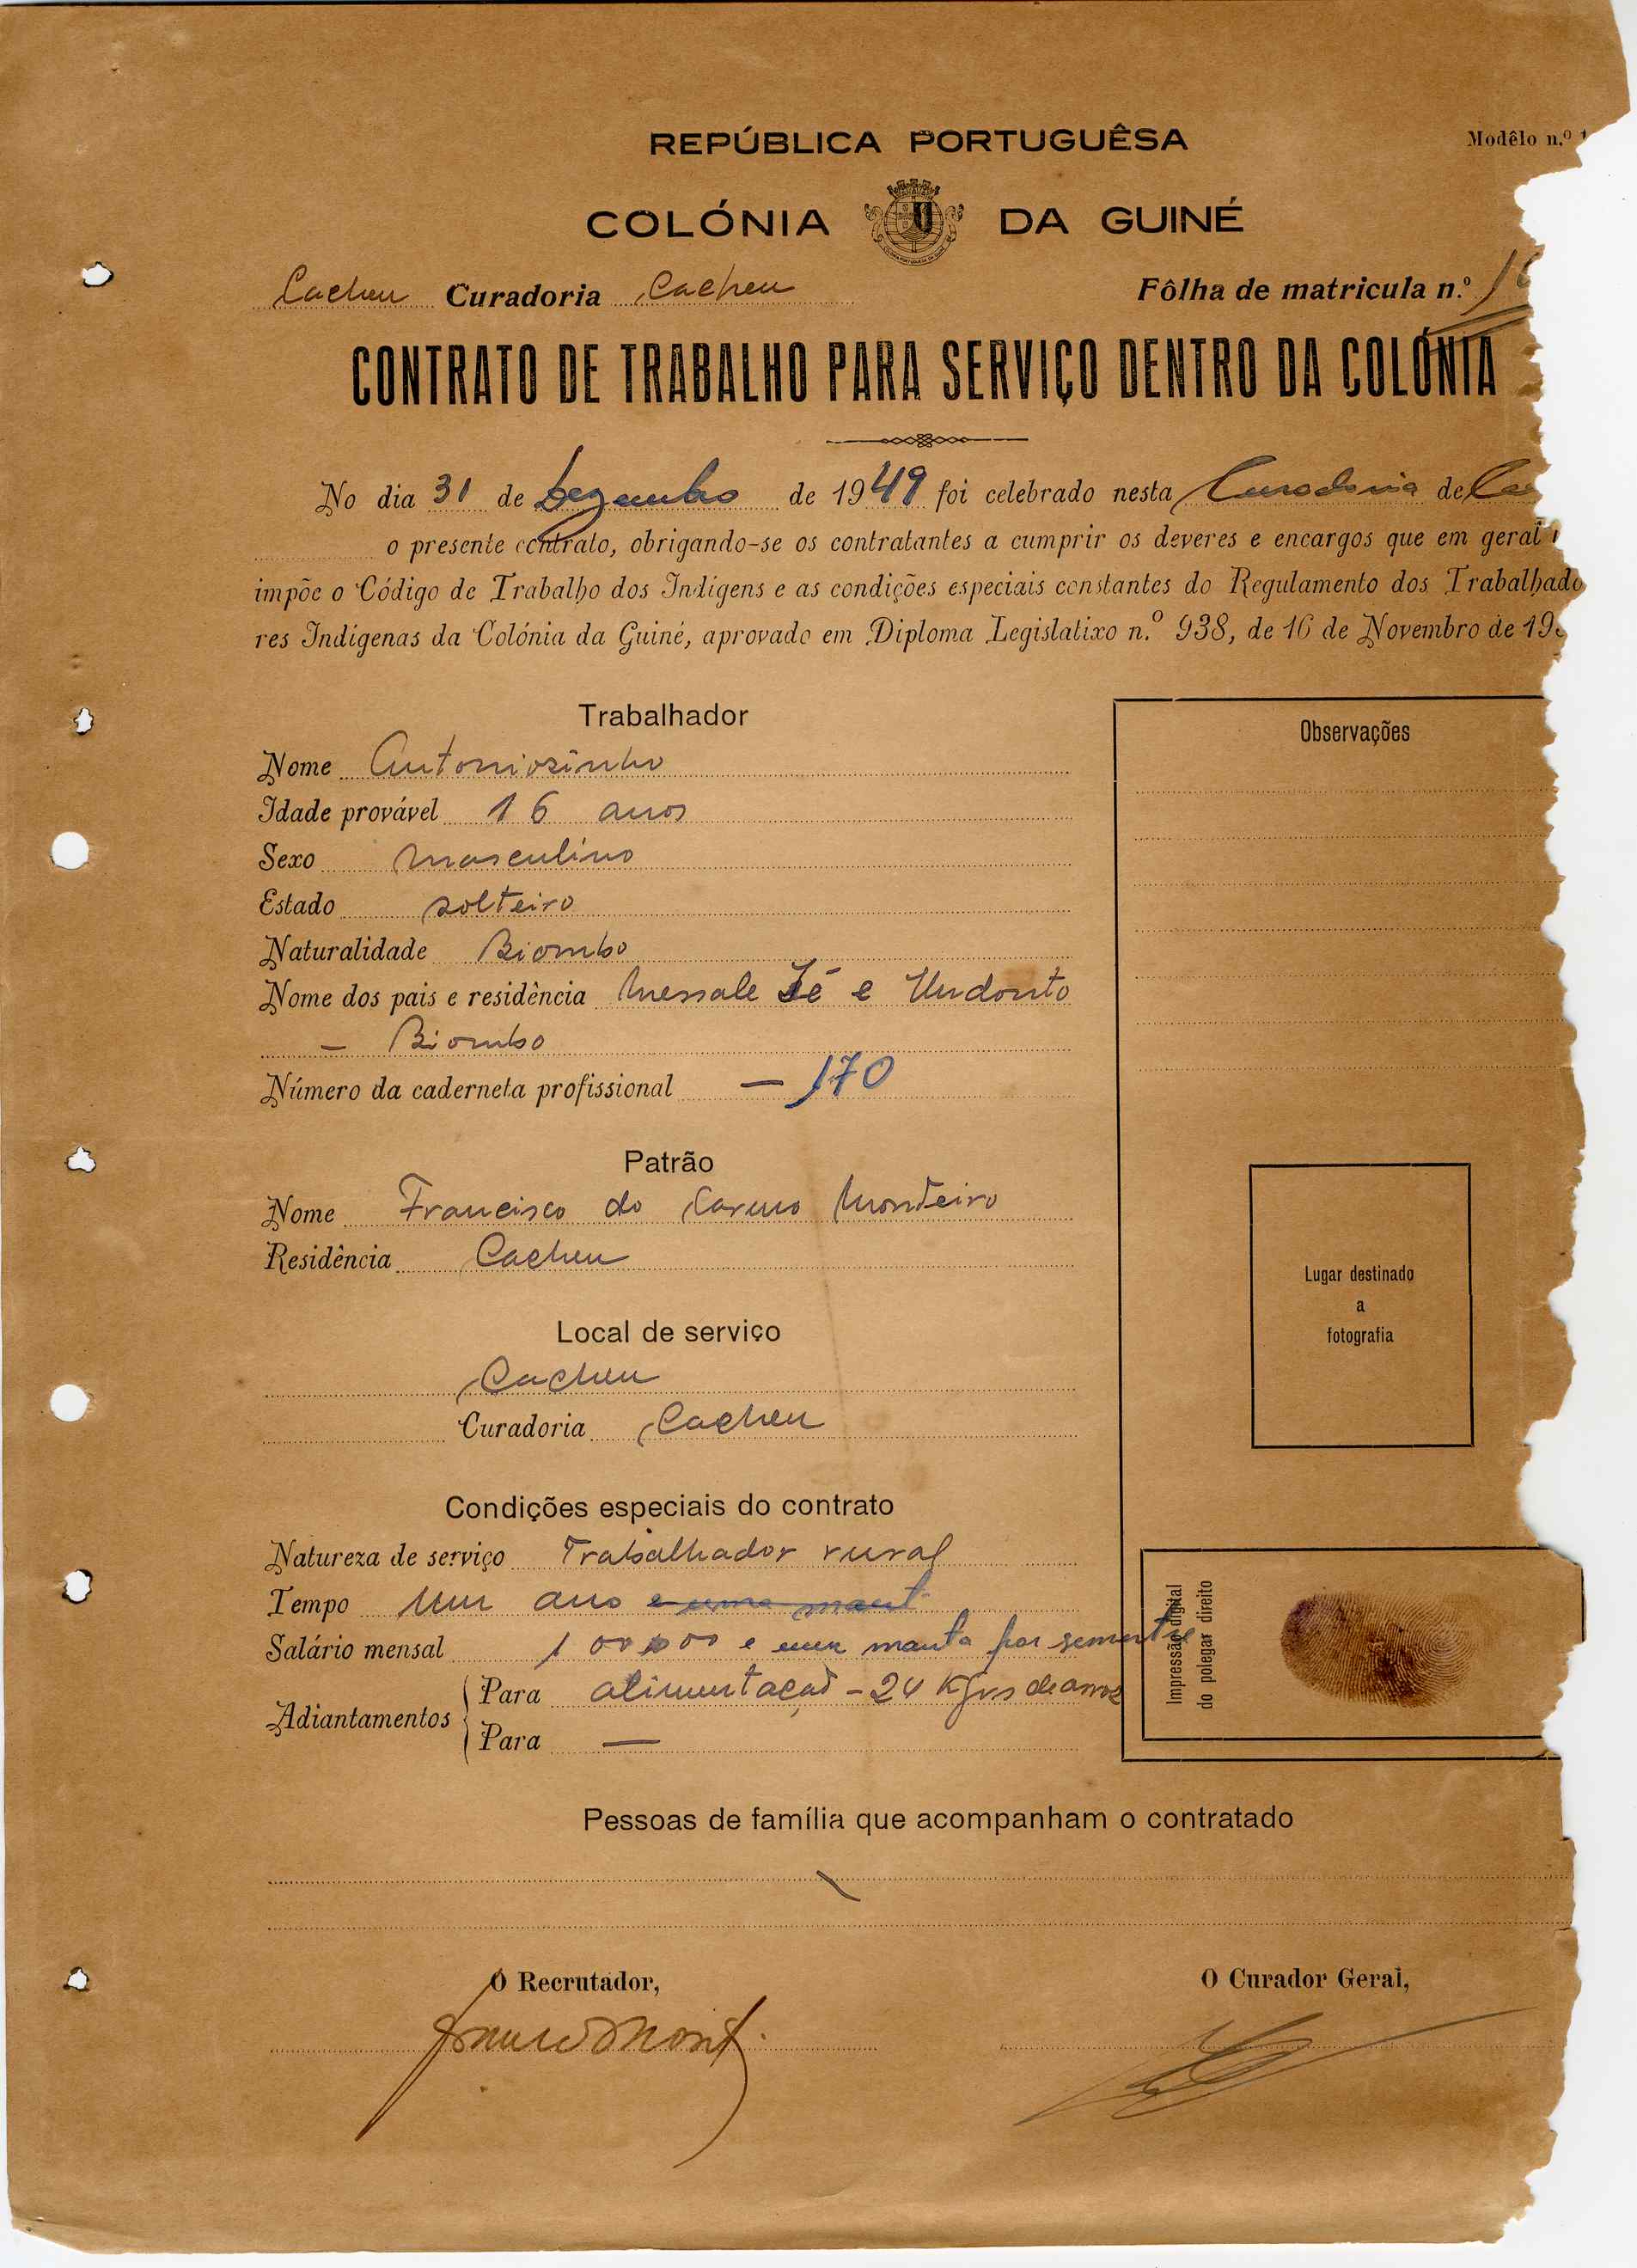 REPÚBLICA PORTUGUÊSA
Modêlo n.º 1
COLÓNIA DA GUINÉ
Cacheu Curadoria Cacheu
Fôlha de matricula n.º
CONTRATO DE TRABALHO PARA SERVIÇO DENTRO DA COLÓNIA
No dia 31 de Dezembro de 1949 foi celebrado nesta Curadoria de
o presente contrato, obrigando-se os contratantes a cumprir os deveres e encargos que em geral
impõe o Código de Trabalho dos Indígens e as condições especiais constantes do Regulamento dos Trabalhado
res Indígenas da Colónia da Guiné, aprovado em Diploma Legislativo n.º 938, de 16 de Novembro de 19
Trabalhador
Nome Antoniozinho
Idade provável 16 anos
Sexo masculino
Estado solteiro
Naturalidade Biombo
Nome dos pais e residência Messale Zé e Undonto
– Biombo
Número da caderneta profissional — 170
Patrão
Nome Francisco do Carmo Monteiro
Residência Cacheu
Local de serviço
Cacheu
Curadoria Cacheu
Condições especiais do contrato
Natureza de serviço Trabalhador rural
Tempo Um ano e uma mant
Salário mensal 100$00 e uma manta por semestre
Adiantamentos
Para alimentação – 24 Kgrs de arroz
Para —
Observações
Lugar destinado
a
fotografia
Impressão digital
do polegar direito
Pessoas de família que acompanham o contratado
O Recrutador,
O Curador Geral,